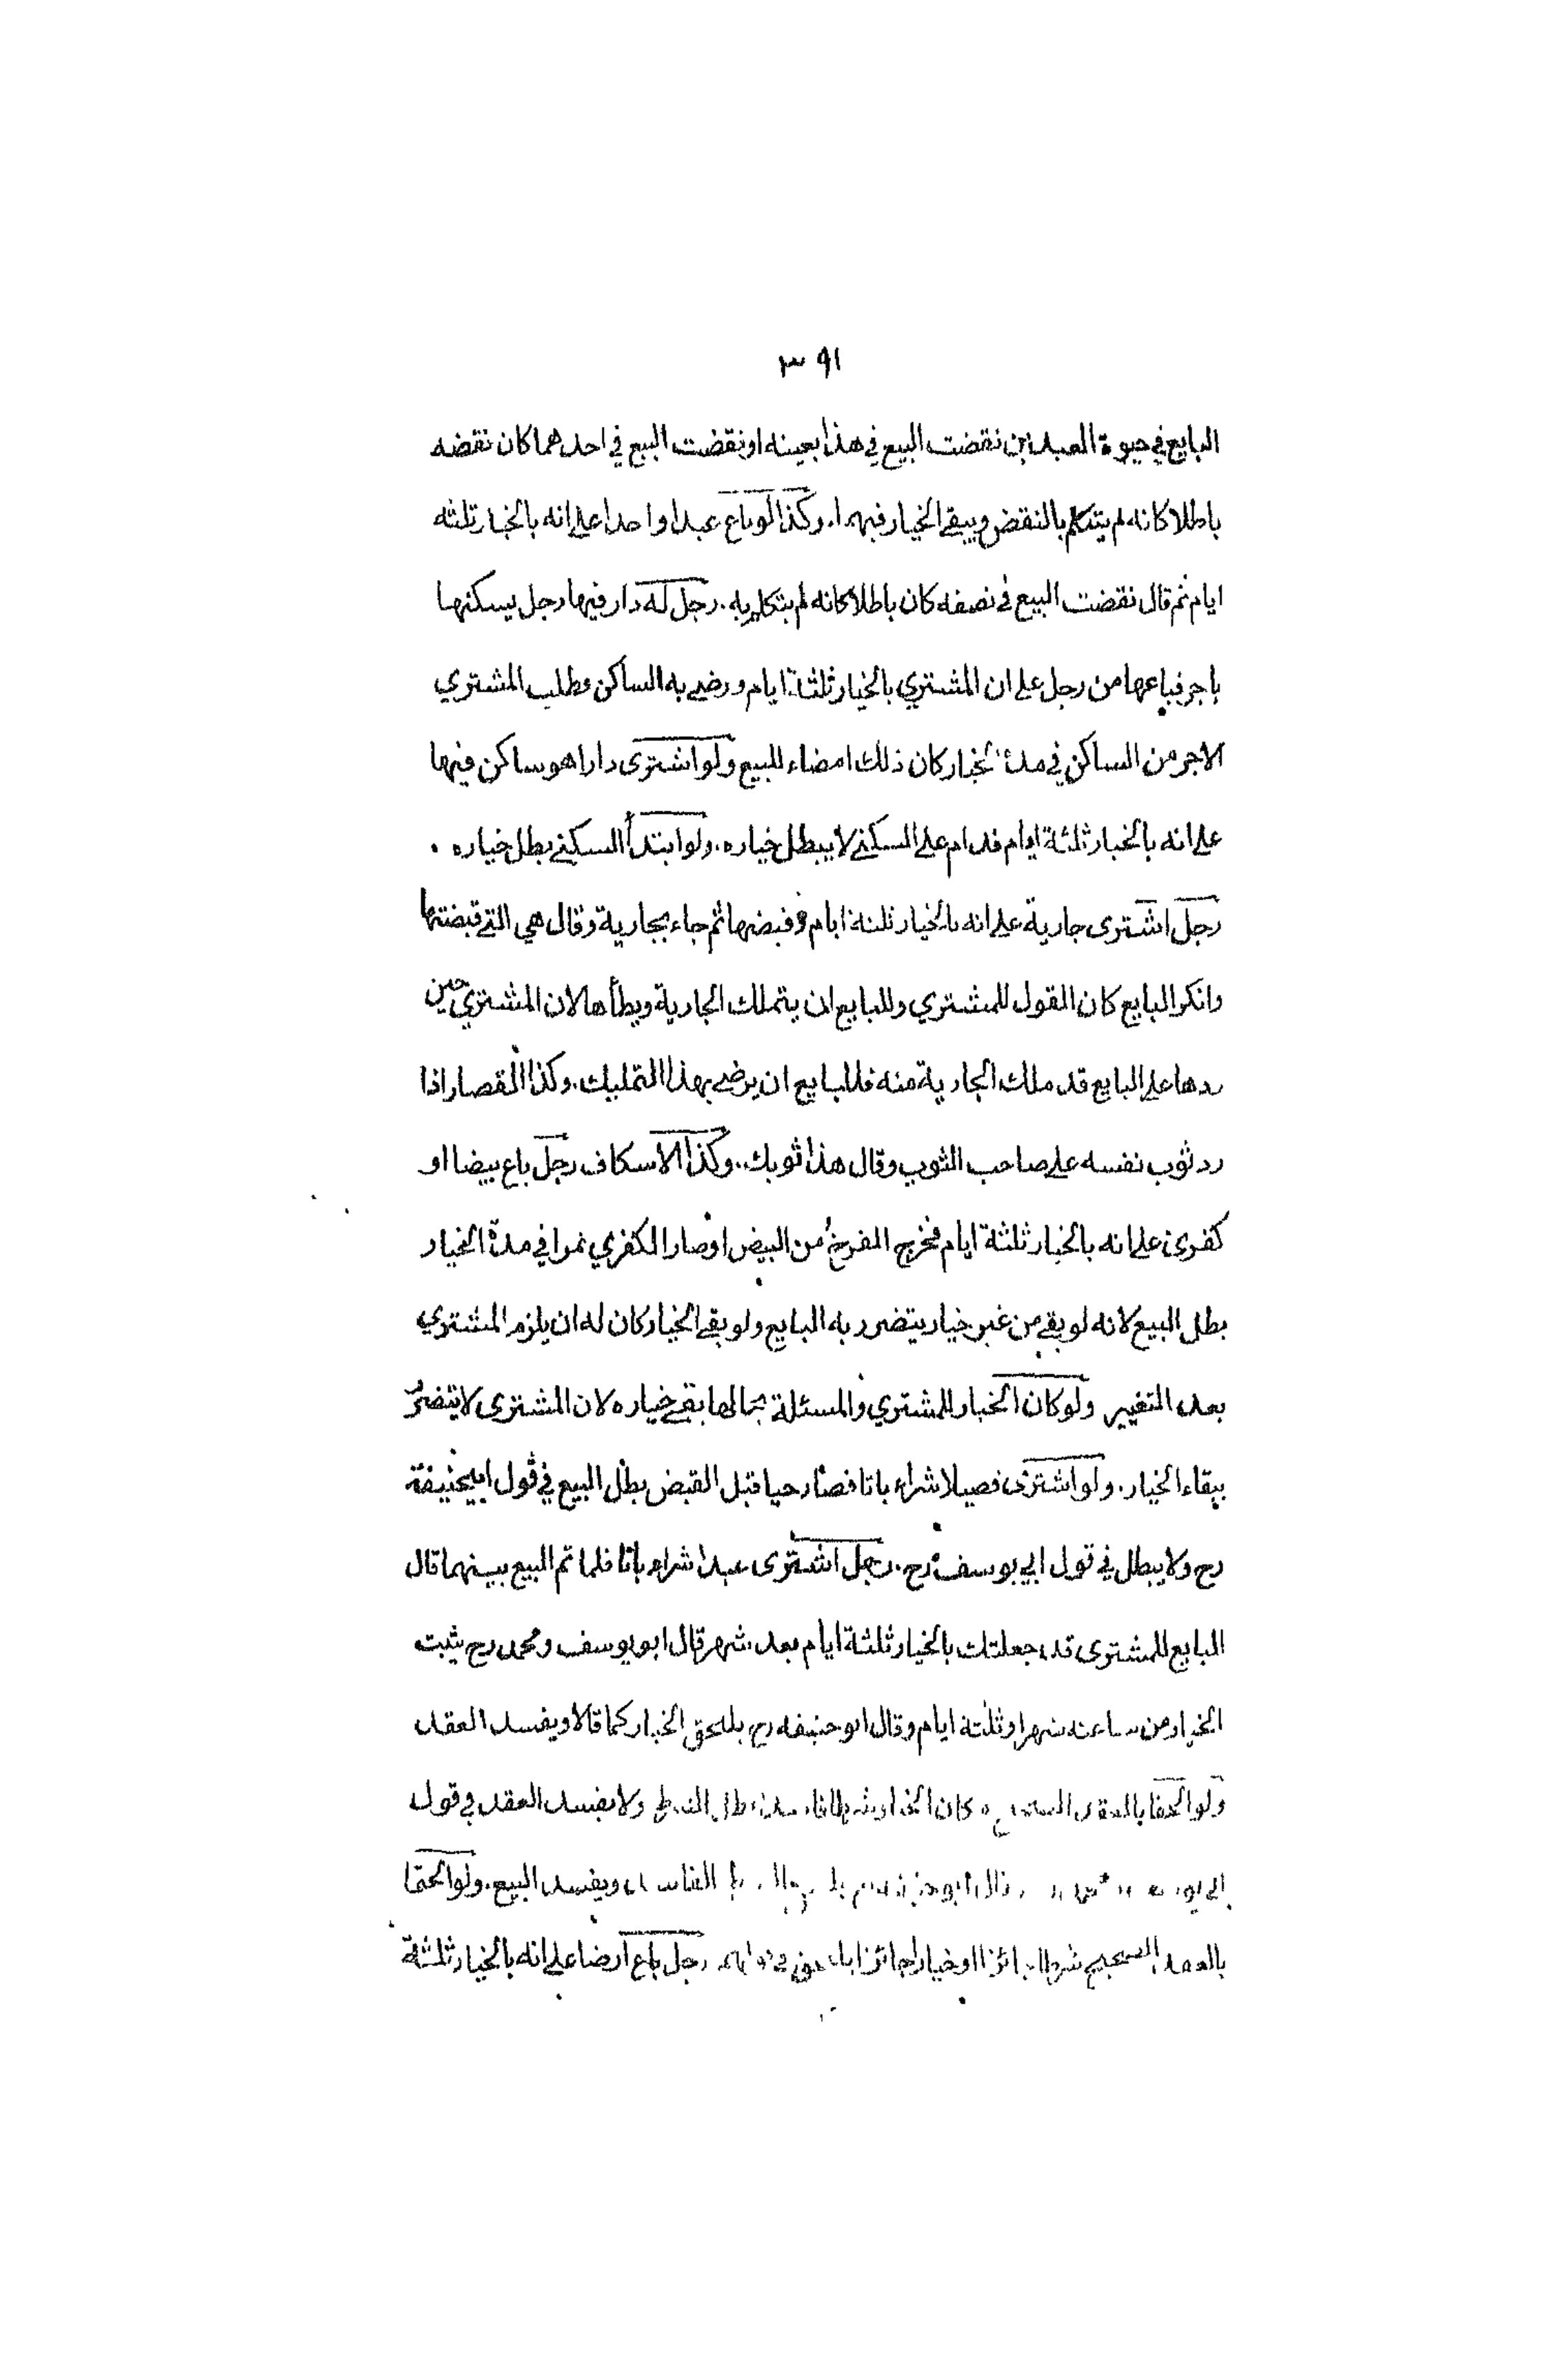 ٣٩١
البايع في حيوة العبدين نقضت البيع في هذا بعينه او نقضت البيع في احدهما كان نقضه
باطلا كانه لم يتكلم بالنقض ويبقے الخيار فيهما. وكذا لو باع عبدا واحدا علے انه بالخيار ثلثه
ايام ثم قال نقضت البيع في نصفه كان باطلا كانه لم يتكلم به. رجل له دار فيها رجل يسكنها
باجر فباعها من رجل علے ان المشتري بالخيار ثلثة ايام ورضے به الساكن وطلب المشتري
الاجر من الساكن في مدة الخيار كان ذلك امضاء للبيع ولو اشترى دارا هو ساكن فيها
علے انه بالخيار ثلثة ايام فدام علے السكنے لا يبطل خياره. ولو ابتدأ السكنے بطل خياره .
رجل اشترى جارية علے انه بالخيار ثلثة ايام وقبضها ثم جاء بجارية وقال هي التے قبضتها
وانكر البايع كان القول للمشتري وللبايع ان يتملك الجارية ويطأها لان المشتري حين
ردها علے البايع قد ملك الجارية منه فللبايع ان يرضے بهذا التمليك. وكذا القصار اذا
رد ثوب نفسه علے صاحب الثوب وقال هذا ثوبك. وكذا الاسكاف رجل باع بيضا او
كفرى علے انه بالخيار ثلثة ايام فخرج الفرخ من البيض او صار الكفري تمرا في مدة الخيار
بطل البيع لانه لو بقے من غير خيار يتضرر به البايع ولو بقے الخيار كان له ان يلزم المشتري
بعد التغيير ولو كان الخيار للمشتري والمسئلة بحالها بقے خياره لان المشترى لا يتضرر
ببقاء الخيار. ولو اشترى فصيلا شراء باتا فصار حبا قبل القبض بطل البيع في قول ابيحنيفة
رح ولا يبطل في قول ابي يوسف رح. رجل اشترى عبدا شراء باتا فلما تم البيع بينهما قال
البايع للمشترى قد جعلتك بالخيار ثلثة ايام بعد شهر قال ابو يوسف ومحمد رح يثبت
الخيار من ساعته شهرا وثلثة ايام وقال ابو حنيفه رح يلتحق الخيار كما قالا ويفسد العقد
ولو الحقا بالعقد كان الخيار ولا يفسد العقد في قول
ابي يوسف الفاسد ويفسد البيع. ولو الحقا
بالعقد الصحيح شرطا جائزا او خيارا جائزا رجل باع ارضا علے انه بالخيار ثلثة